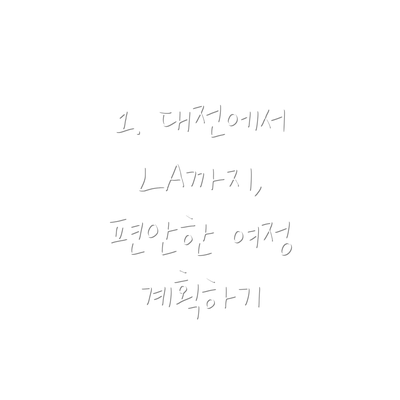 1. 대전에서
LA까지,
편안한 여정
계획하기